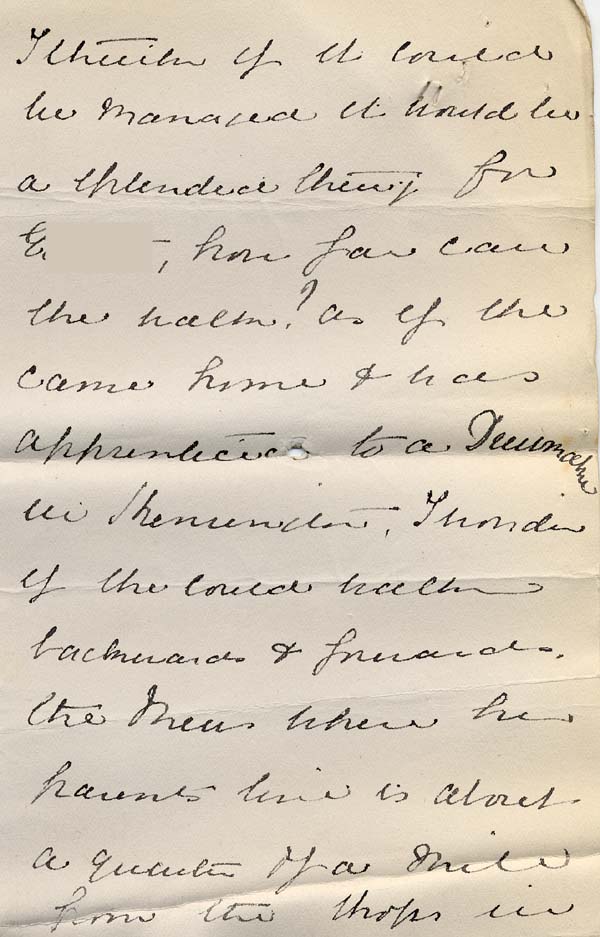 I think if it could
be managed it would be
a splendid thing for
E. , how far can
she walk? as if she
came home & was
apprenticed to a Dressmaker
in Kensington, I wonder
if she could walk
backwards & forwards.
the Mews where her
parents live is about
a quarter of a Mile
from the shops in